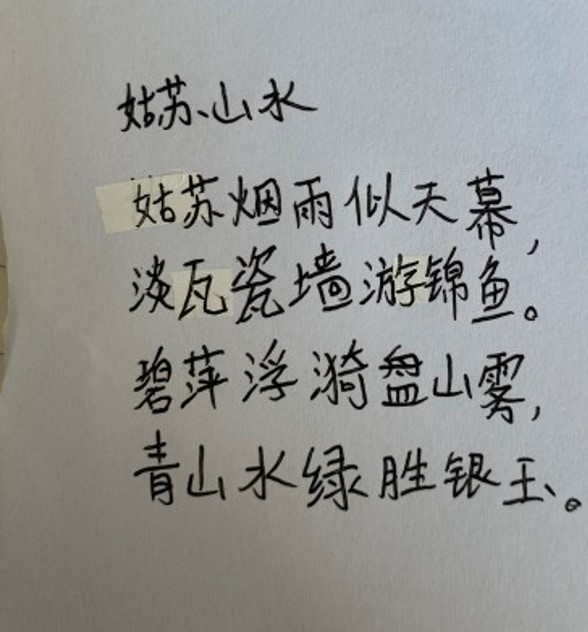 姑苏山水
姑苏烟雨似天幕,
淡瓦瓷墙游锦鱼。
碧萍浮漪盘山雾,
青山水绿胜银玉。